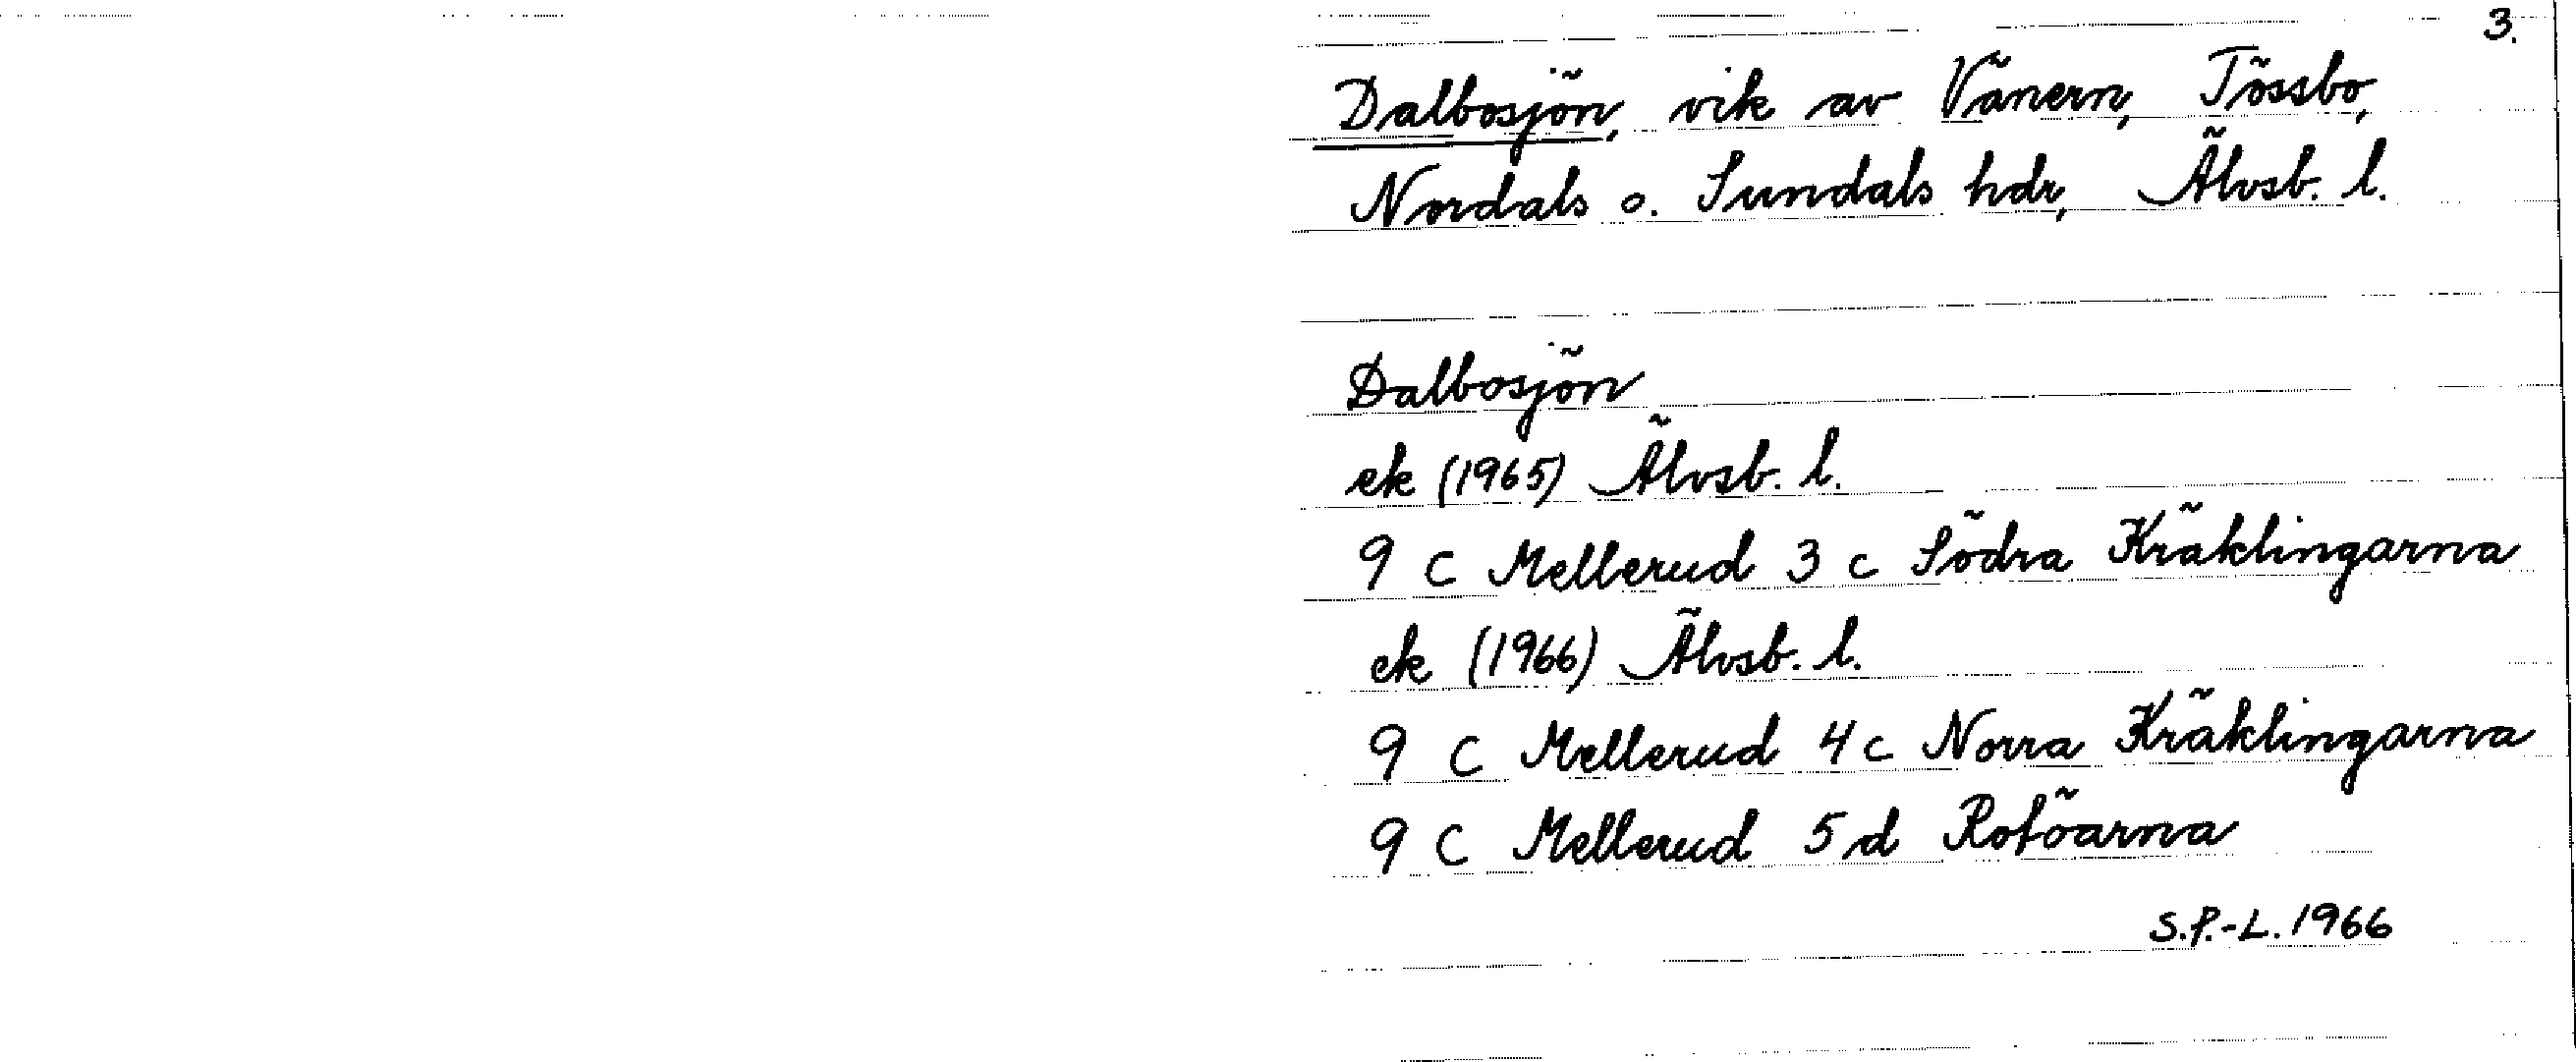 3.
Dalbosjön, vik av Vänern, Tössbo,
Nordals o. Sundals hdr, Älvsb. l.
Dalbosjön
ek (1965) Älvsb. l.
9 C Mellerud 3 c Södra Kräklingarna
ek (1966) Älvsb. l.
9 C Mellerud 4 c Norra Kräklingarna
9 C Mellerud 5 d Rotöarna
S.P.-L. 1966